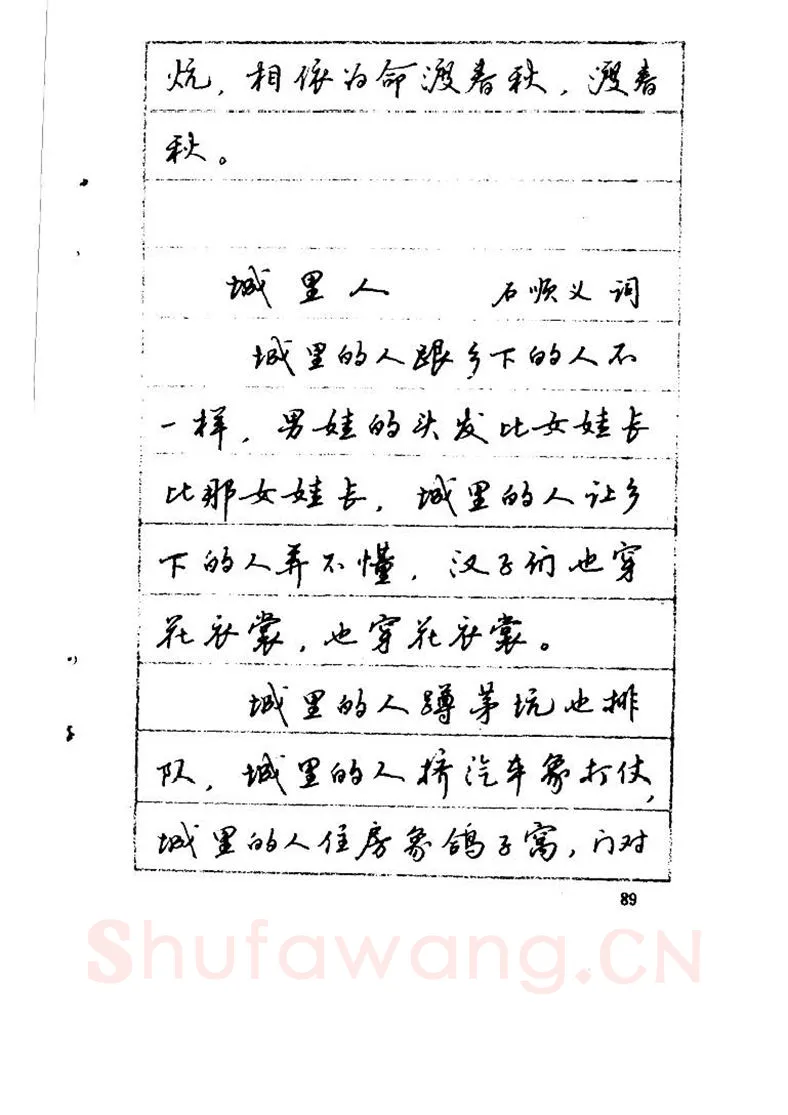 炕，相依为命渡春秋，渡春
秋。
城里人 石顺义 词
城里的人跟乡下的人不
一样，男娃的头发比女娃长
比那女娃长，城里的人让乡
下的人弄不懂，汉子们也穿
花衣裳，也穿花衣裳。
城里的人蹲茅坑也排
队，城里的人挤汽车象打仗，
城里的人住房象鸽子窝，门对
89
Shufawang.CN